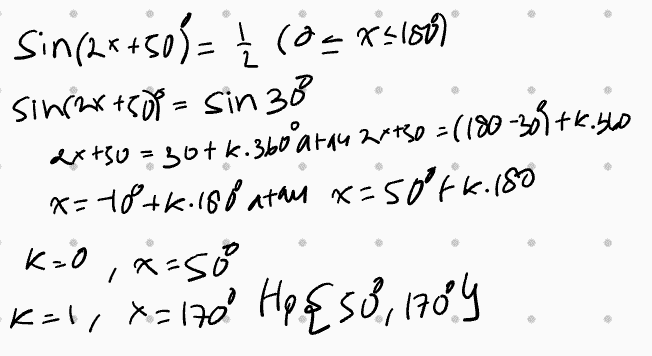 Sin(2x+50°) = 1/2 (0 ≤ x ≤ 180°)
sin(2x+50)° = sin 30°
2x+50 = 30 + k.360° atau 2x+50 = (180-30°) + k.360
x = -10° + k.180° atau x = 50° + k.180
k=0, x = 50°
k=1, x = 170° Hp {50°, 170°}